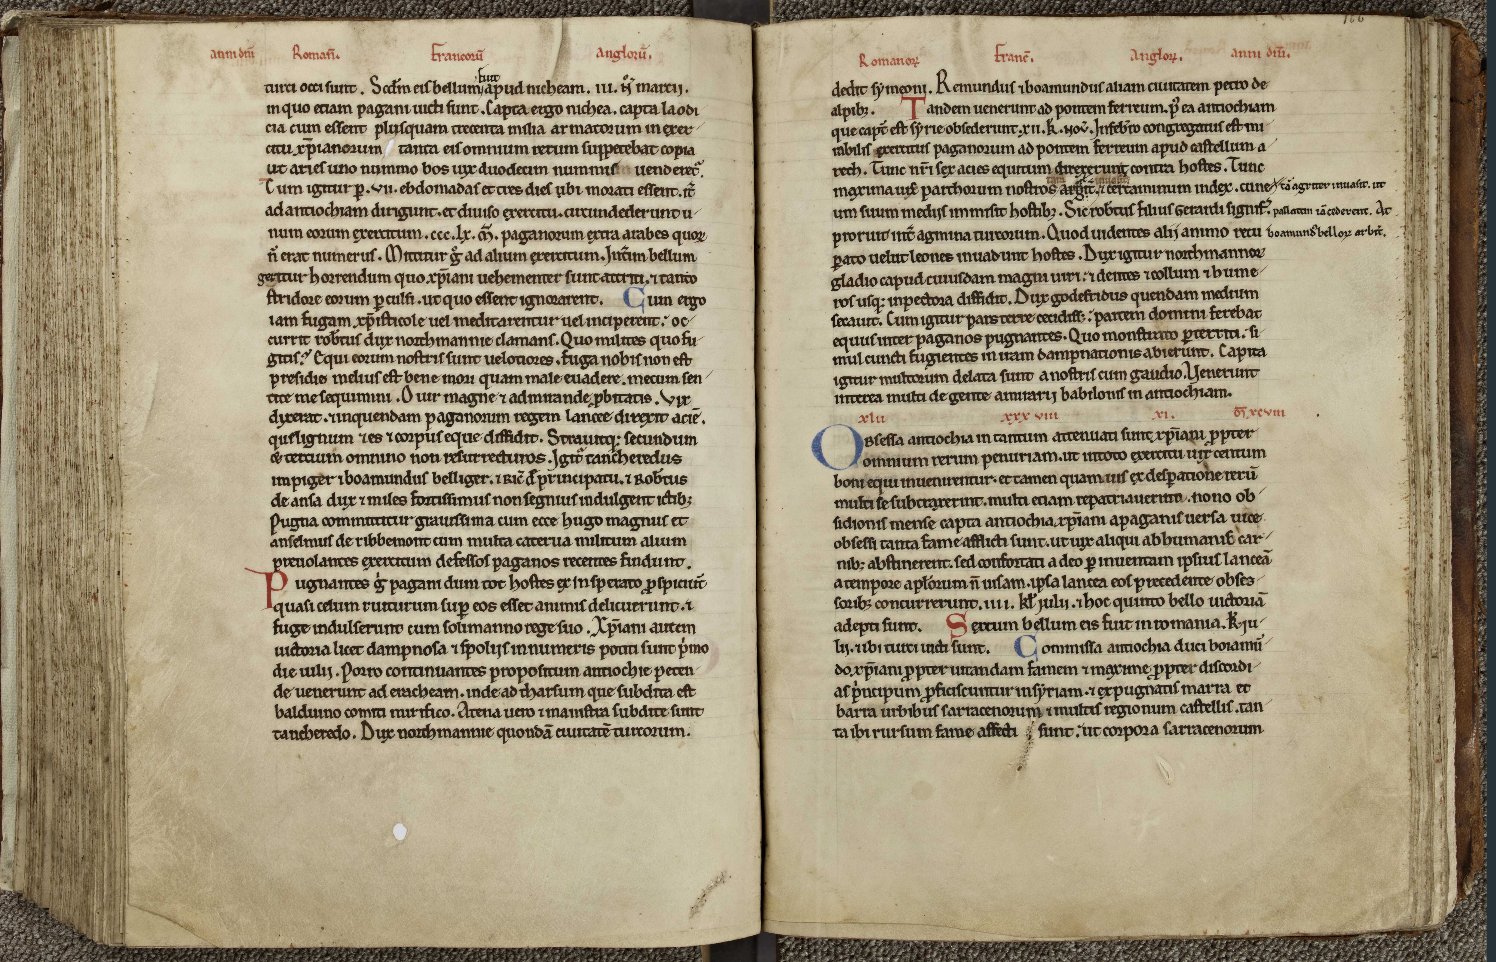 anni dñi Romañ. Francorũ Anglorũ.
turci occisi sunt. Scdm̃ eis bellum fuit apud nicheam. iii. nͦ marcij.
in quo etiam pagani uicti sunt. Capta ergo nichea. capta laodi
cia cum essent plusquam trecenta milia armatorum in exer
citu xp̃ianorum tanta eis omnium rerum suppetebat copia
ut aries uno nummo bos uix duodecim nummis uenderet᷑.
Cum igitur ꝑ .vii. ebdomadas et tres dies ibi morati essent. it̃
ad antiochiam dirigunt. et diuiso exercitu. circundederunt u
num eorum exercitum. ccc. lx. m̃. paganorum extra arabes quoꝝ
ñ erat numerus. Mittitur g̊ ad alium exercitum. Int̃im bellum
geritur horrendum quo xp̃iani uehementer sunt attriti. ⁊ tanto
stridore eorum ꝑculsi. ut quo essent ignorarent. Cum ergo
iam fugam xp̃isticole uel meditarentur uel inciperent. oc
currit rob̃tus dux northmannie clamans. Quo milites quo fu
gitis? Equi eorum nostris sunt uelociores. fuga nobis non est
presidio melius est bene mori quam male euadere. mecum sen
tite me sequimini. O uir magne ⁊ admirande ꝓbitatis. Vix
dixerat. ⁊ in quendam paganorum regem lancee direxit aciẽ.
que lignum ⁊ es ⁊ corpus eque diffidit. Strauitq; secundum
⁊ tercium omnino non resurrecturos. Igit᷑ tanc̃heredus
impiger ⁊ boamundus belliger. ⁊ Ric̃ d̃ principatu. ⁊ Rob̃tus
de ansa dux ⁊ miles fortissimus non segnius indulgent ictib;
Pugna committitur grauissima cum ecce hugo magnus et
anselmus de ribbemont cum multa caterua militum alium
preuolantes exercitum defessos paganos recentes findunt.
Pugnantes g̊ pagani dum tot hostes ex insperato ꝓspiciunt̃
quasi celum ruiturum suꝑ eos esset animis delicuerunt. ⁊
fuge indulserunt cum solimanno rege suo. Xp̃iani autem
uictoria licet dampnosa ⁊ spolijs innumeris potiti sunt pͥmo
die iulii. Porro continuantes propositum antiochie peten
de uenerunt ad eracheam. inde ad tharsum que subdita est
balduino comiti mirifico. Atena uero ⁊ mamistra subdite sunt
tancheredo. Dux northmannie quondã ciuitatẽ turcorum.
166
Romanoꝝ Franc̃. Angloꝝ. anni dñi.
dedit symeoni. Remundus ⁊ boamundus aliam ciuitatem petro de
alpib;. Tandem uenerunt ad pontem ferreum. p̃ ea antiochiam
que cap̃ est syrie obsederunt. xii. k̃. nou̾. In feb̃ro congregatus est mi
rabilis exercitus paganorum ad pontem ferreum apud castellum a
rech. Tunc nr̃i sex acies equitum direxerunt contra hostes. Tunc
maxima uis parthorum nostros ⁊ certaminum index. cune tã acriter inuasit. ut
um suum medijs immisit hostib;. Sic rob̃tus filius Gerardi signif᷑. paulatim iã cederent. At
proruit int̃ agmina turcorum. Quod uidentes alij animo recu boamund᷒ belloꝝ arbit̃.
ꝑato uelut leones inuadunt hostes. Dux igitur northmannoꝝ
gladio capud cuiusdam magni uiri. ⁊ dentes ⁊ collum ⁊ hume
ros usq; in pectora diffidit. Dux godefridus quendam medium
secauit. Cum igitur pars terre cecidiss;. partem domini ferebat
equus inter paganos pugnantes. Quo monstrato ꝑterriti. si
mul cuncti fugientes in iram dampnationis abierunt. Capita
igitur multorum delata sunt a nostris cum gaudio. Venerunt
interea multi de gente amirarij babilonis in antiochiam.
xlii xxxviii xi. m̃ xcviii
Obsessa antiochia in tantum attenuati sunt xp̃iani ꝓpter
omnium rerum penuriam. ut in toto exercitu uix centum
boni equi inuenirentur. et tamen quamuis ex desperatione rerũ
multi se subtraxerint. multi etiam repatriauerint. nono ob
sidionis mense capta antiochia. xp̃iani a paganis uersa uice
obsessi tanta fame afflicti sunt. ut uix aliqui ab humanis car
nib; abstinerent. sed confortati a deo ꝑ inuentam ipsius lanceã
a tempore apl̃orum ñ uisam. ipsa lancea eos precedente obses
sorib; concurrerunt. iiii. kl̃ iulii. ⁊ hoc quinto bello uictoriã
adepti sunt. Sextum bellum eis fuit in romania. k̃. iu
lij. ⁊ ibi turci uicti sunt. Commissa antiochia duci boiamũ
do. xp̃iani ꝓpter uitandam famem ⁊ maxime ꝓpter discordi
as pͥncipum ꝓficiscuntur in syriam. ⁊ expugnatis marra et
barra urbibus sarracenorum ⁊ multis regionum castellis. tan
ta ibi rursum fame affecti sunt. ut corpora sarracenorum